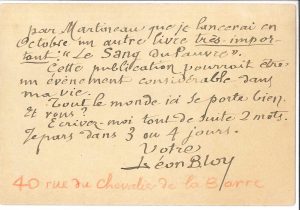 par Martineau, que je lancerai en
Octobre un autre livre très impor-
tant : « Le Sang du Pauvre ».
Cette publication pourrait être
un événement considérable dans
ma vie.
Tout le monde ici se porte bien.
Et vous ?
Ecrivez-moi tout de suite 2 mots.
Je pars dans 3 ou 4 jours.
Votre
Léon Bloy
40 rue du Chevalier de la Barre